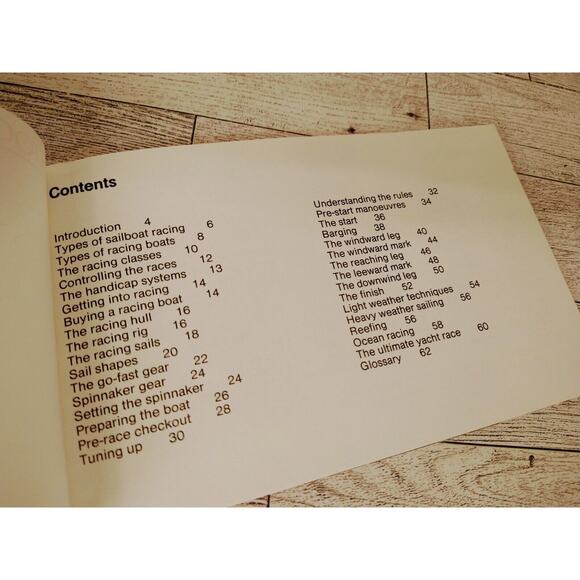 Contents
Introduction 4
Types of sailboat racing 6
Types of racing boats 8
The racing classes 10
Controlling the races 12
The handicap systems 13
Getting into racing 14
Buying a racing boat 14
The racing hull 16
The racing rig 16
The racing sails 18
Sail shapes 20
The go-fast gear 22
Spinnaker gear 24
Setting the spinnaker 24
Preparing the boat 26
Pre-race checkout 28
Tuning up 30
Understanding the rules 32
Pre-start manoeuvres 34
The start 36
Barging 38
The windward leg 40
The windward mark 44
The reaching leg 46
The leeward mark 48
The downwind leg 50
The finish 52
Light weather techniques 54
Heavy weather sailing 56
Reefing 56
Ocean racing 58
The ultimate yacht race 60
Glossary 62